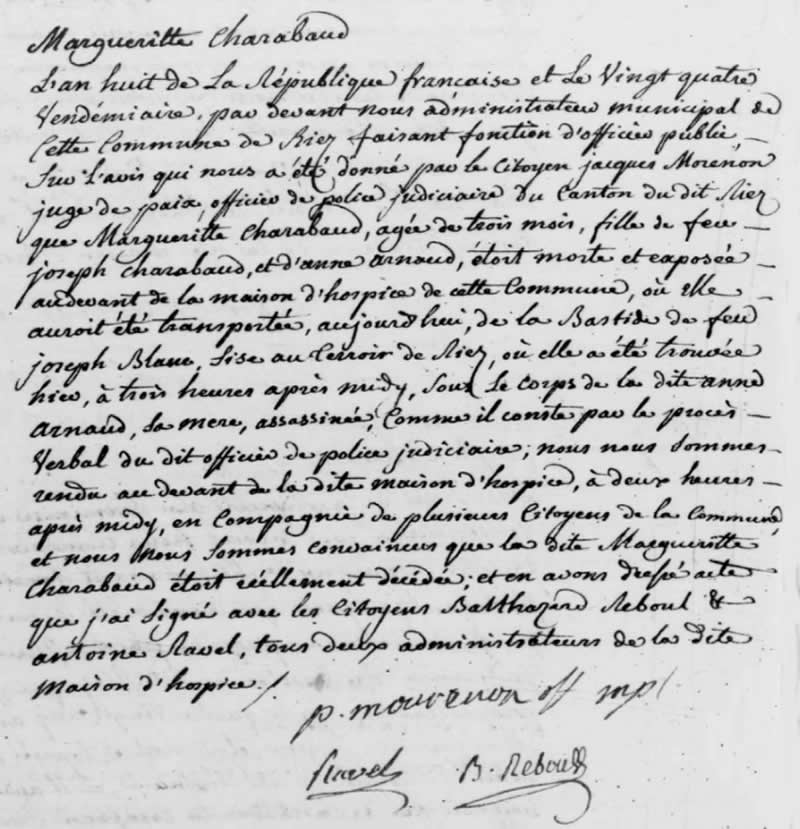 Margueritte Charabaud
L'an huit de La République francaise et Le Vingt quatre
Vendémiaire, par devant nous administrateur municipal de
Cette Commune de Riez faisant fonction d'officier public,
Sur L'avis qui nous a été donné par le Citoyen jacques Morenon
juge de paix, officier de police judiciaire du Canton du dit Riez
que Margueritte Charabaud, agée de trois mois, fille de feu
joseph Charabaud, et d'anne arnaud, étoit morte et exposée
audevant de la maison d'hospice de cette Commune, où elle
auroit été transportée, aujourd'hui, de la Bastide de feu
joseph Blanc, Sise au terroir de Riez, où elle a été trouvée
hier, à trois heures après midy, Sous Le corps de la dite anne
arnaud, Sa mere, assassinée, Comme il conste par le procès
Verbal du dit officier de police judiciaire; nous nous Sommes
rendu au devant de la dite maison d'hospice, à deux heures
après midy, en Compagnie de plusieurs Citoyens de la Commune,
et nous nous Sommes convaincus que la dite Margueritte
Charabaud étoit réellement décédée; et en avons dressé acte
que j'ai Signé avec les Citoyens Balthazard Reboul &
antoine Ravel, tous deux administrateurs de la dite
Maison d'hospice./
p. mourenon off mpl
Ravel B. Reboul